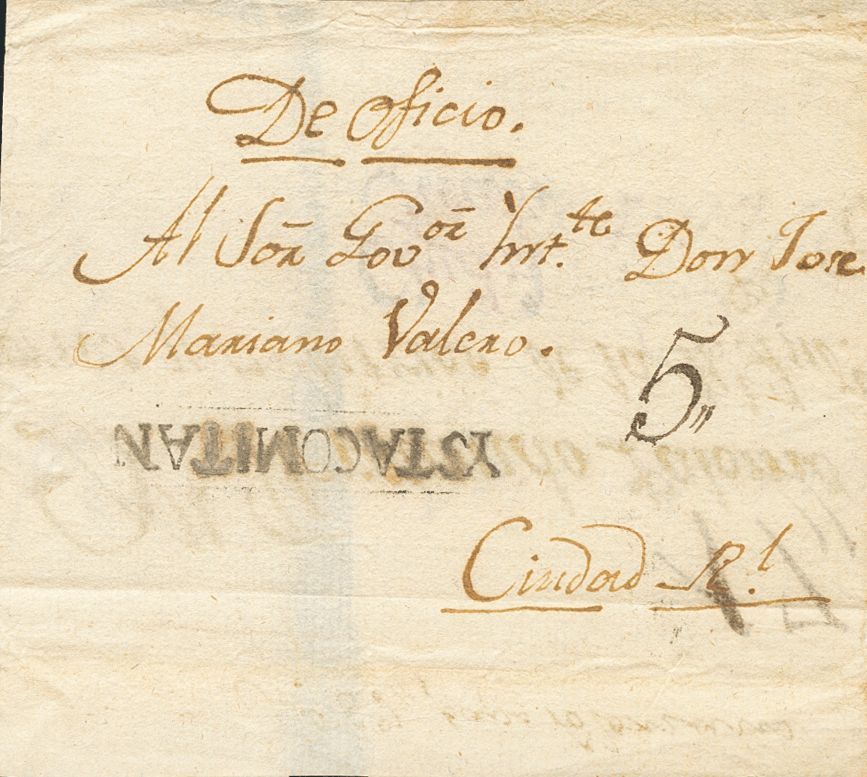 De Oficio.
Al Sōr Gov.or Int.te Don Jose
Mariano Valero.
5,,
YSTACOMITAN
Ciudad R.l